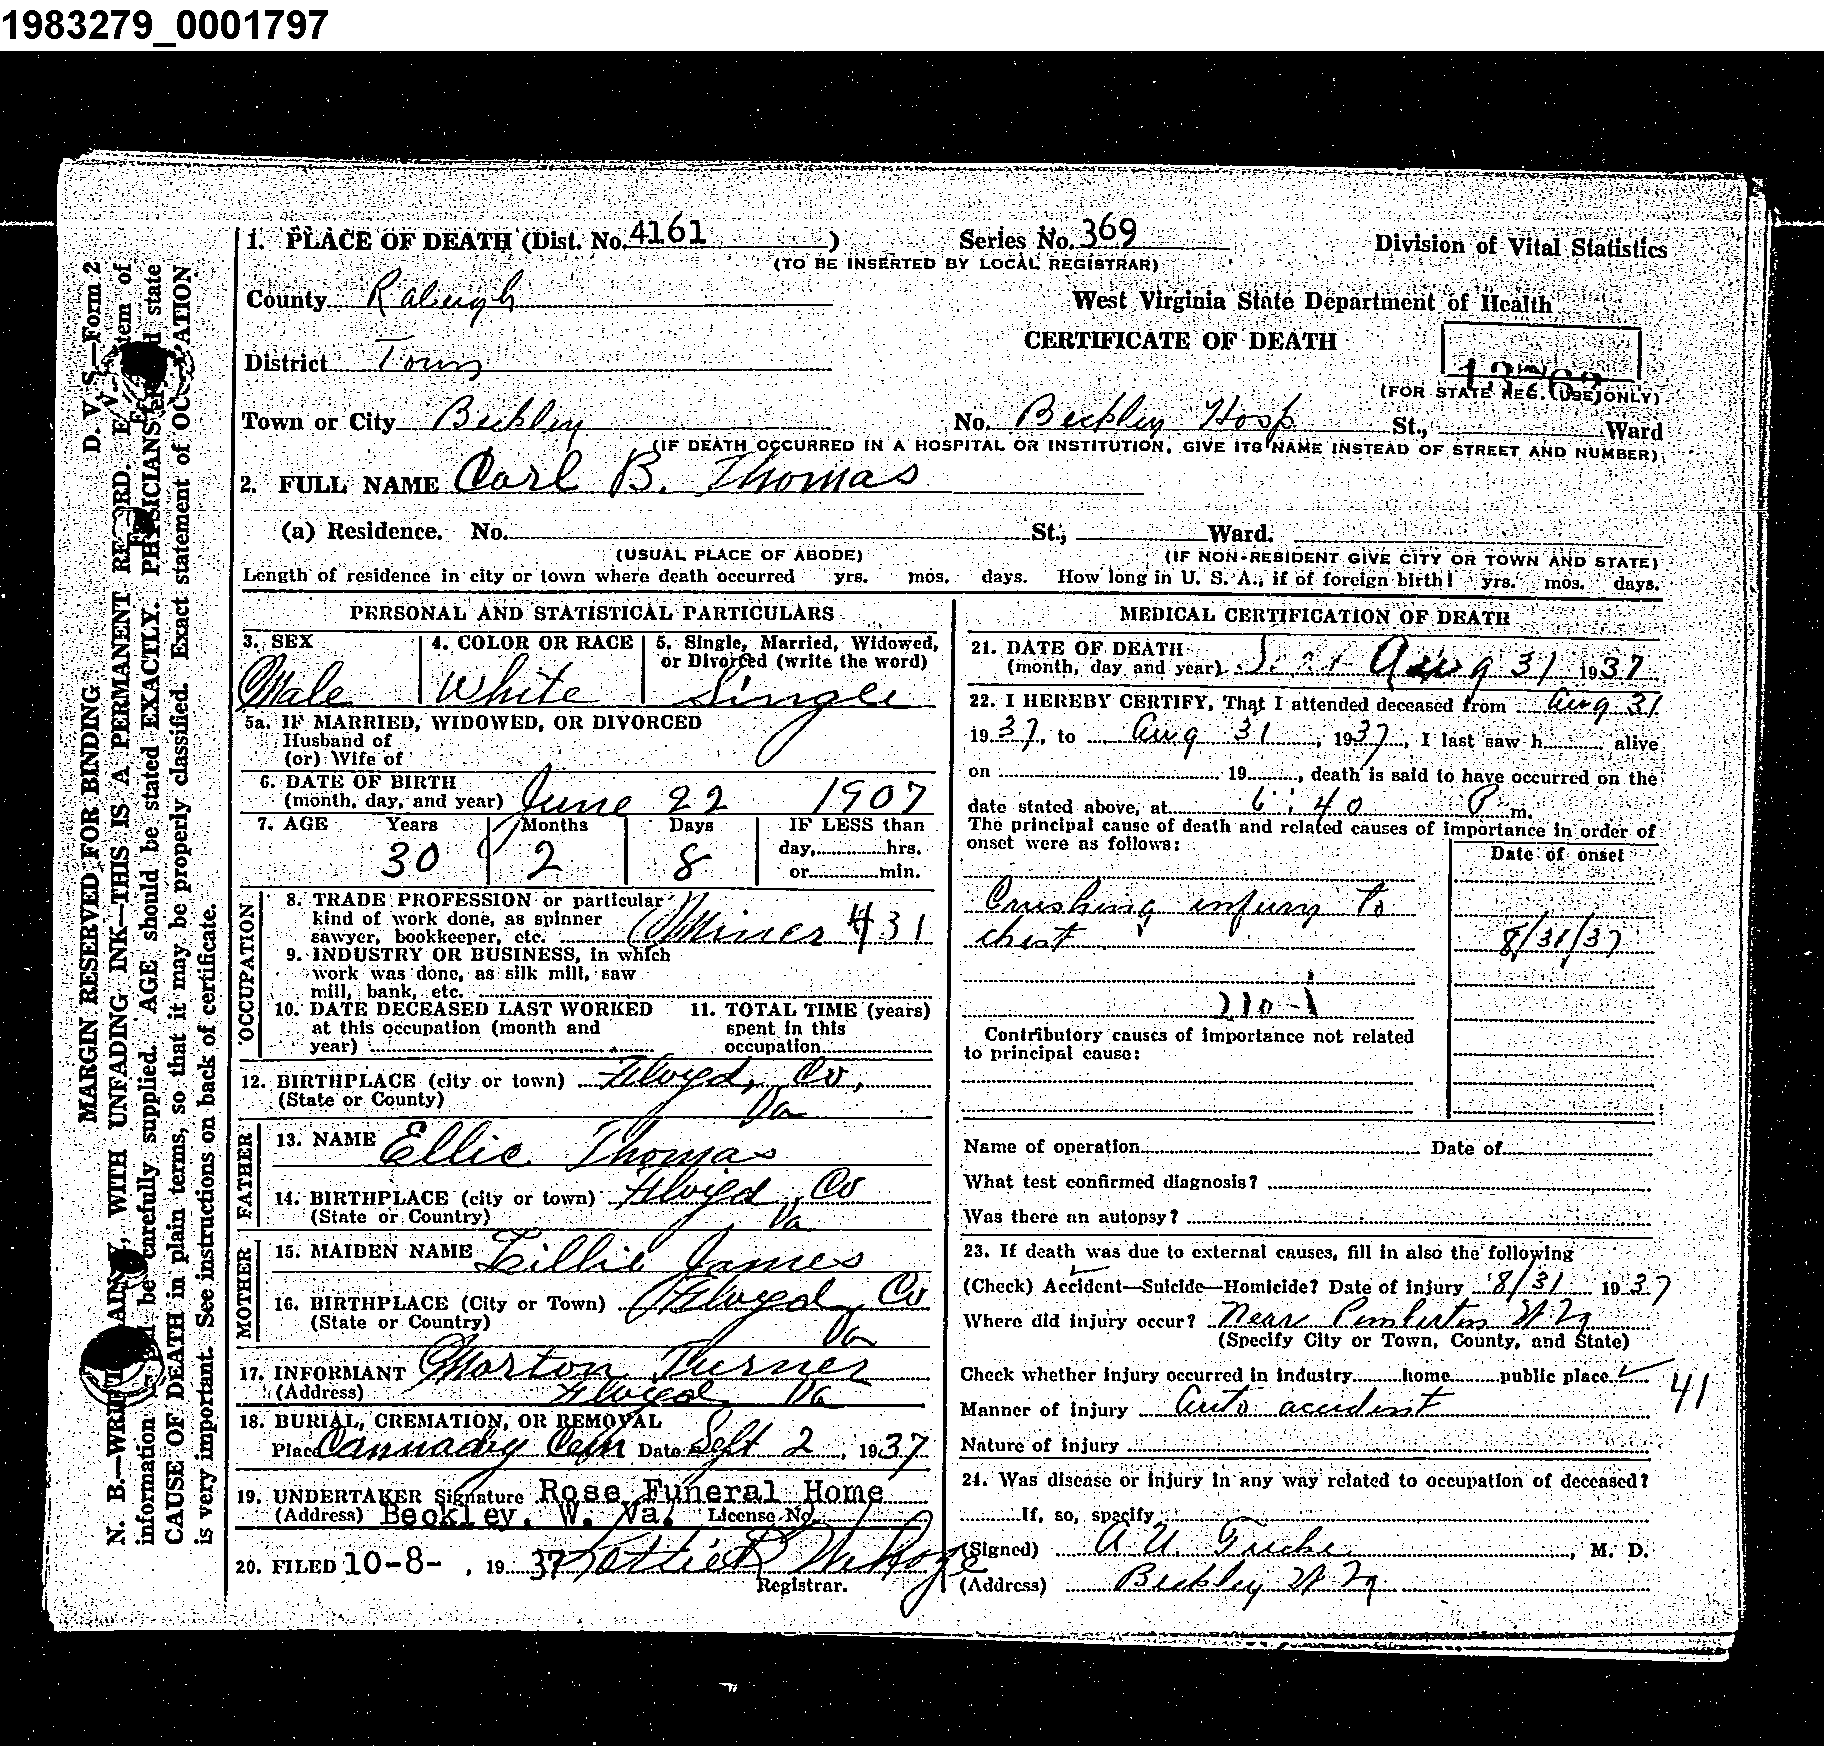 1983279_0001797
1. PLACE OF DEATH (Dist. No. 4161 ) Series No. 369 Division of Vital Statistics
(TO BE INSERTED BY LOCAL REGISTRAR)
County Raleigh West Virginia State Department of Health
CERTIFICATE OF DEATH
District Town
(FOR STATE REG. USE ONLY)
Town or City Beckley No. Beckley Hosp St., Ward
(IF DEATH OCCURRED IN A HOSPITAL OR INSTITUTION, GIVE ITS NAME INSTEAD OF STREET AND NUMBER)
2. FULL NAME Carl B. Thomas
(a) Residence. No. St., Ward.
(USUAL PLACE OF ABODE) (IF NON-RESIDENT GIVE CITY OR TOWN AND STATE)
Length of residence in city or town where death occurred yrs. mos. days. How long in U. S. A., if of foreign birth? yrs. mos. days.
PERSONAL AND STATISTICAL PARTICULARS
3. SEX 4. COLOR OR RACE 5. Single, Married, Widowed,
or Divorced (write the word)
Male White Single
5a. IF MARRIED, WIDOWED, OR DIVORCED
Husband of
(or) Wife of
6. DATE OF BIRTH
(month, day, and year) June 22 1907
7. AGE Years Months Days IF LESS than
30 2 8 day, hrs.
or min.
OCCUPATION
8. TRADE PROFESSION or particular
kind of work done, as spinner
sawyer, bookkeeper, etc. Miner 431
9. INDUSTRY OR BUSINESS, in which
work was done, as silk mill, saw
mill, bank, etc.
10. DATE DECEASED LAST WORKED 11. TOTAL TIME (years)
at this occupation (month and spent in this
year) occupation
12. BIRTHPLACE (city or town) Floyd, Co,
(State or County) Va
FATHER
13. NAME Ellie Thomas
14. BIRTHPLACE (city or town) Floyd Co
(State or Country) Va
MOTHER
15. MAIDEN NAME Lillie James
16. BIRTHPLACE (City or Town) Floyd Co
(State or Country) Va
17. INFORMANT Morton Turner
(Address) Floyd Va
18. BURIAL, CREMATION, OR REMOVAL
Place Cannady Cem Date Sept 2, 1937
19. UNDERTAKER Signature Rose Funeral Home
(Address) Beckley, W. Va. License No.
20. FILED 10-8-, 19 37
Registrar.
MEDICAL CERTIFICATION OF DEATH
21. DATE OF DEATH
(month, day and year) Aug 31 1937
22. I HEREBY CERTIFY, That I attended deceased from Aug 31
1937, to Aug 31, 1937, I last saw h alive
on 19, death is said to have occurred on the
date stated above, at 6:40 P m.
The principal cause of death and related causes of importance in order of
onset were as follows:
Date of onset
Crushing injury to
chest 8/31/37
210-i
Contributory causes of importance not related
to principal cause:
Name of operation Date of
What test confirmed diagnosis?
Was there an autopsy?
23. If death was due to external causes, fill in also the following
(Check) Accident—Suicide—Homicide? Date of injury 8/31 1937
Where did injury occur? Near Pemberton W Va
(Specify City or Town, County, and State)
Check whether injury occurred in industry home public place ✓
41
Manner of injury Auto accident
Nature of injury
24. Was disease or injury in any way related to occupation of deceased?
If, so, specify
(Signed) A U, M. D.
(Address) Beckley W Va
D. V. S.—Form 2
MARGIN RESERVED FOR BINDING
N. B.—WRITE PLAINLY, WITH UNFADING INK—THIS IS A PERMANENT RECORD. Every item of
information should be carefully supplied. AGE should be stated EXACTLY. PHYSICIANS should state
CAUSE OF DEATH in plain terms, so that it may be properly classified. Exact statement of OCCUPATION
is very important. See instructions on back of certificate.